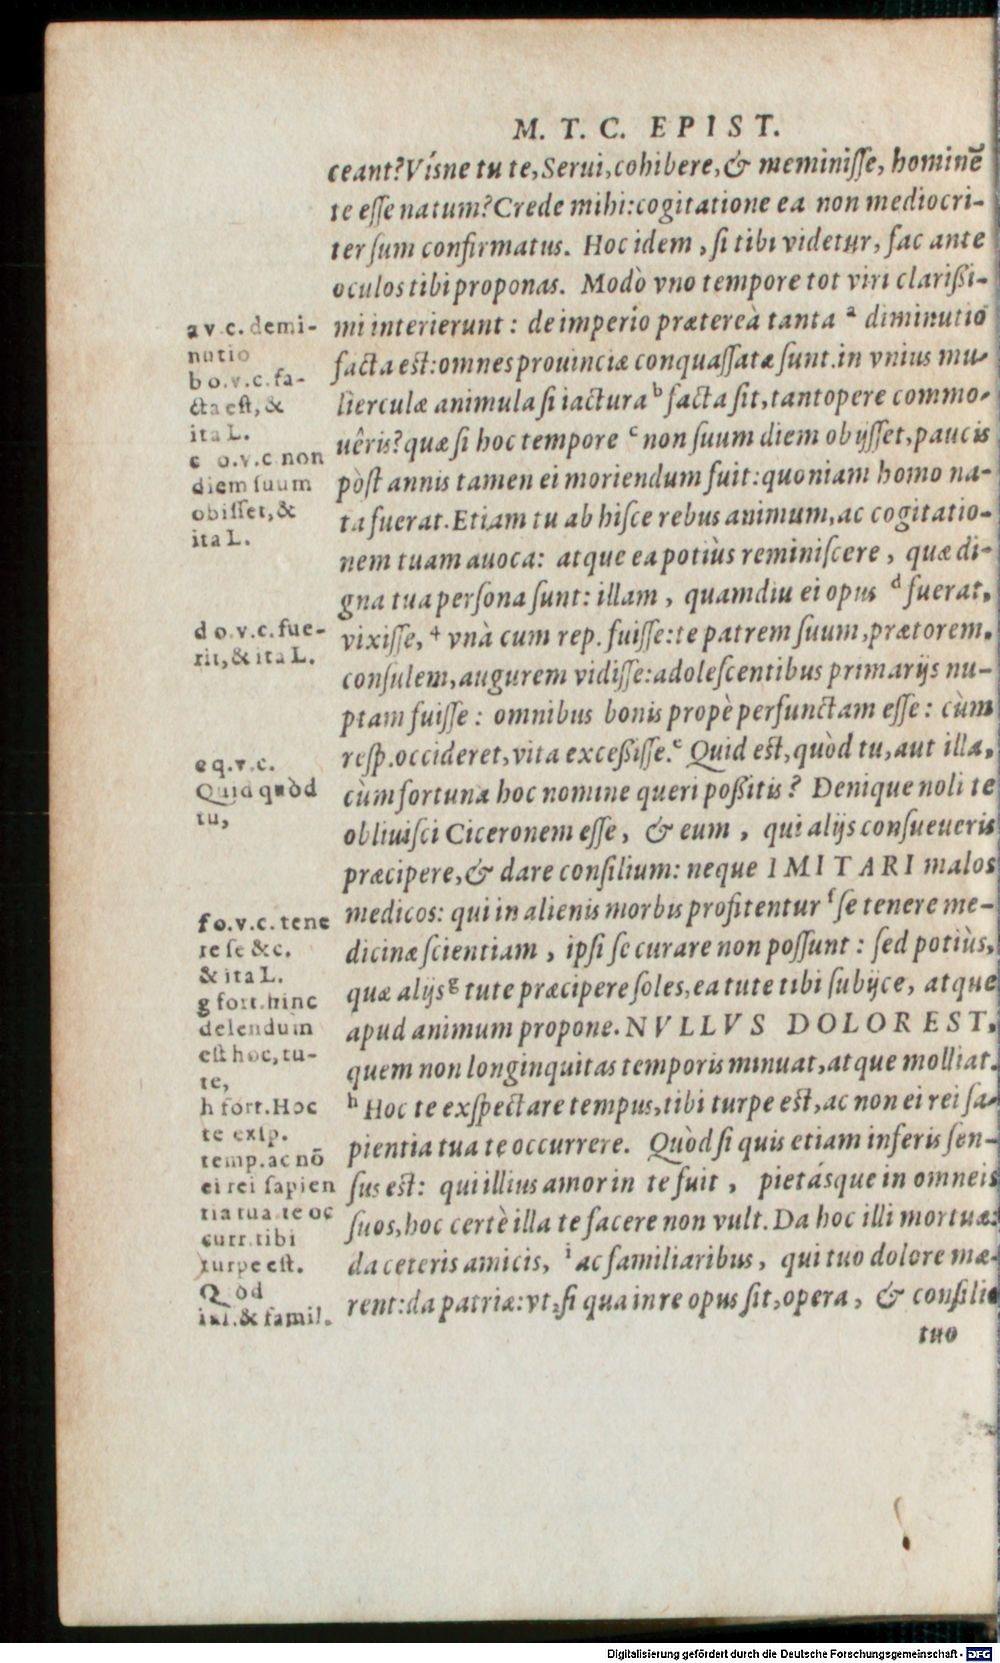 M. T. C. EPIST.
ceant? Vísne tu te, Serui, cohibere, & meminisse, hominē
te esse natum? Crede mihi: cogitatione ea non mediocri-
ter sum confirmatus. Hoc idem, si tibi videtur, fac ante
oculos tibi proponas. Modò vno tempore tot viri clarißi-
mi interierunt: de imperio prætereà tanta ᵃ diminutio
facta est: omnes prouinciæ conquassatæ sunt. in vnius mu-
lierculæ animula si iactura ᵇ facta sit, tantopere commo-
uêris? quæ si hoc tempore ᶜ non suum diem obijsset, paucis
pòst annis tamen ei moriendum fuit: quoniam homo na-
ta fuerat. Etiam tu ab hisce rebus animum, ac cogitatio-
nem tuam auoca: atque ea potiùs reminiscere, quæ di-
gna tua persona sunt: illam, quamdiu ei opus ᵈ fuerat,
vixisse, ⁴ vnà cum rep. fuisse: te patrem suum, prætorem,
consulem, augurem vidisse: adolescentibus primarijs nu-
ptam fuisse: omnibus bonis propè perfunctam esse: cùm
resp. occideret, vita exceßisse. ᵉ Quid est, quòd tu, aut illa,
cùm fortuna hoc nomine queri poßitis? Denique noli te
obliuisci Ciceronem esse, & eum, qui alijs consueueris
præcipere, & dare consilium: neque IMITARI malos
medicos: qui in alienis morbis profitentur ᶠ se tenere me-
dicinæ scientiam, ipsi se curare non possunt: sed potiùs,
quæ alijs ᵍ tute præcipere soles, ea tute tibi subijce, atque
apud animum propone. NVLLVS DOLOR EST,
quem non longinquitas temporis minuat, atque molliat.
ʰ Hoc te exspectare tempus, tibi turpe est, ac non ei rei sa-
pientia tua te occurrere. Quòd si quis etiam inferis sen-
sus est: qui illius amor in te fuit, pietásque in omneis
suos, hoc certè illa te facere non vult. Da hoc illi mortuæ:
da ceteris amicis, ⁱ ac familiaribus, qui tuo dolore mæ-
rent: da patriæ: vt, si qua in re opus sit, opera, & consilio
tuo
a v.c. demi-
nutio
b o.v.c. fa-
cta est, &
ita L.
c o.v.c. non
diem suum
obisset, &
ita L.
d o.v.c. fue-
rit, & ita L.
e q.v.c.
Quid quòd
tu,
f o.v.c. tene
re se &c.
& ita L.
g fort. hinc
delendum
est hoc, tu-
te,
h fort. Hoc
te exsp.
temp. ac nō
ei rei sapien
tia tua te oc
curr. tibi
turpe est.
Quòd
i al. & famil.
Digitalisierung gefördert durch die Deutsche Forschungsgemeinschaft - DFG